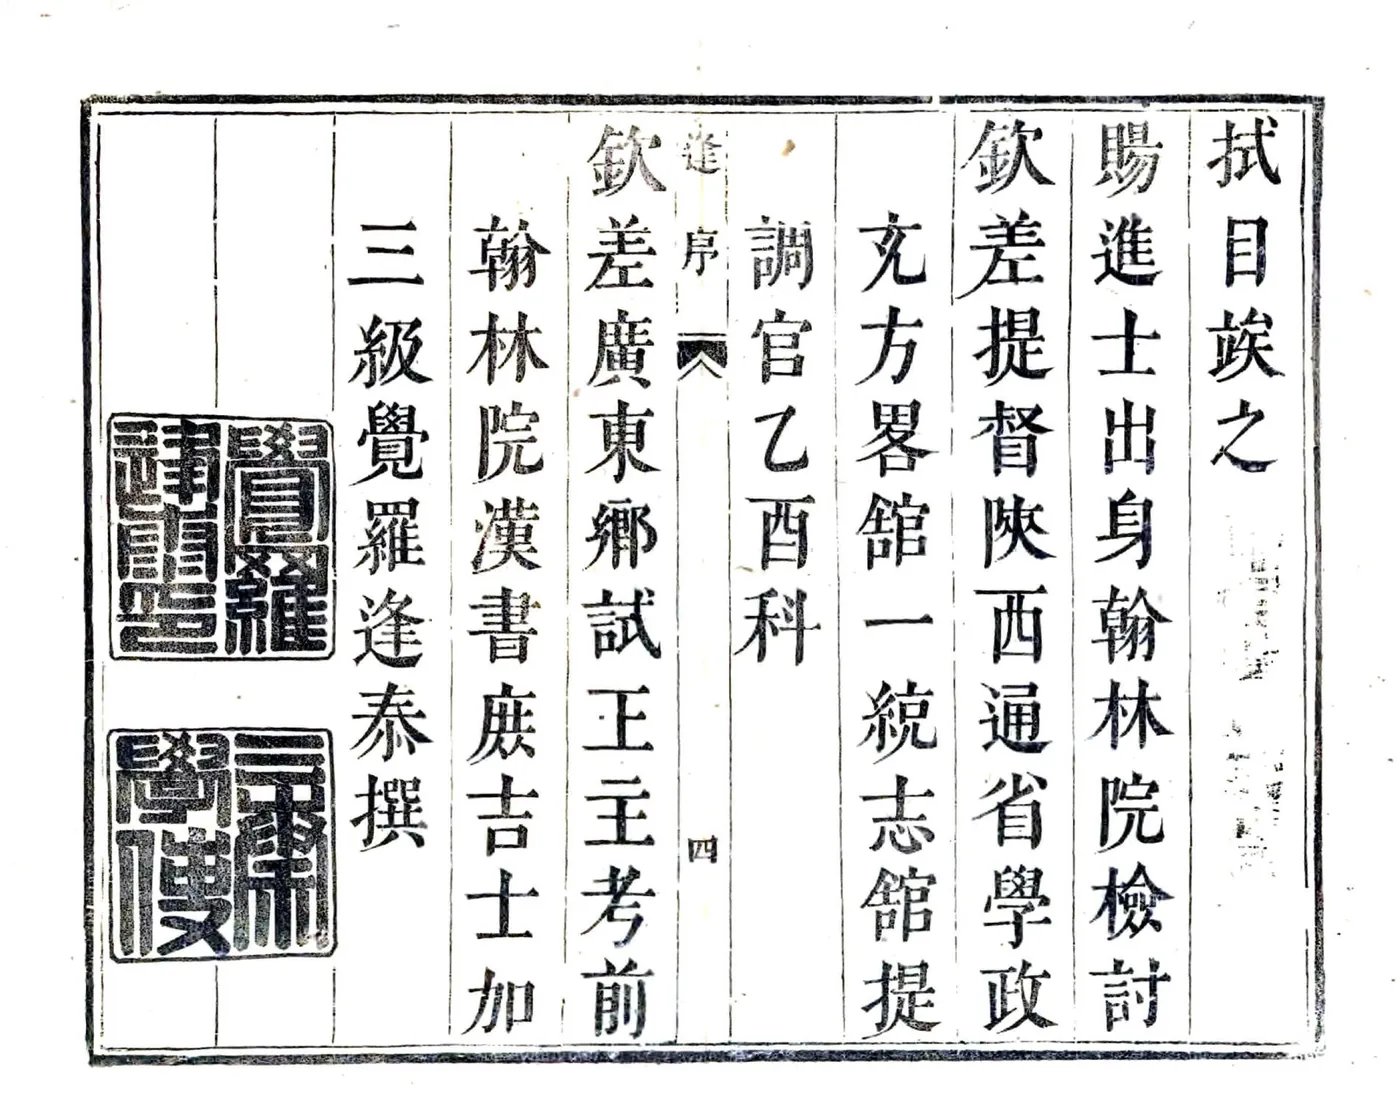 拭目竢之
賜進士出身翰林院檢討
欽差提督陜西通省學政
充方畧舘一統志舘提
調官乙酉科
逢序
四
欽差廣東鄉試正主考前
翰林院漢書庶吉士加
三級覺羅逢泰撰
覺羅